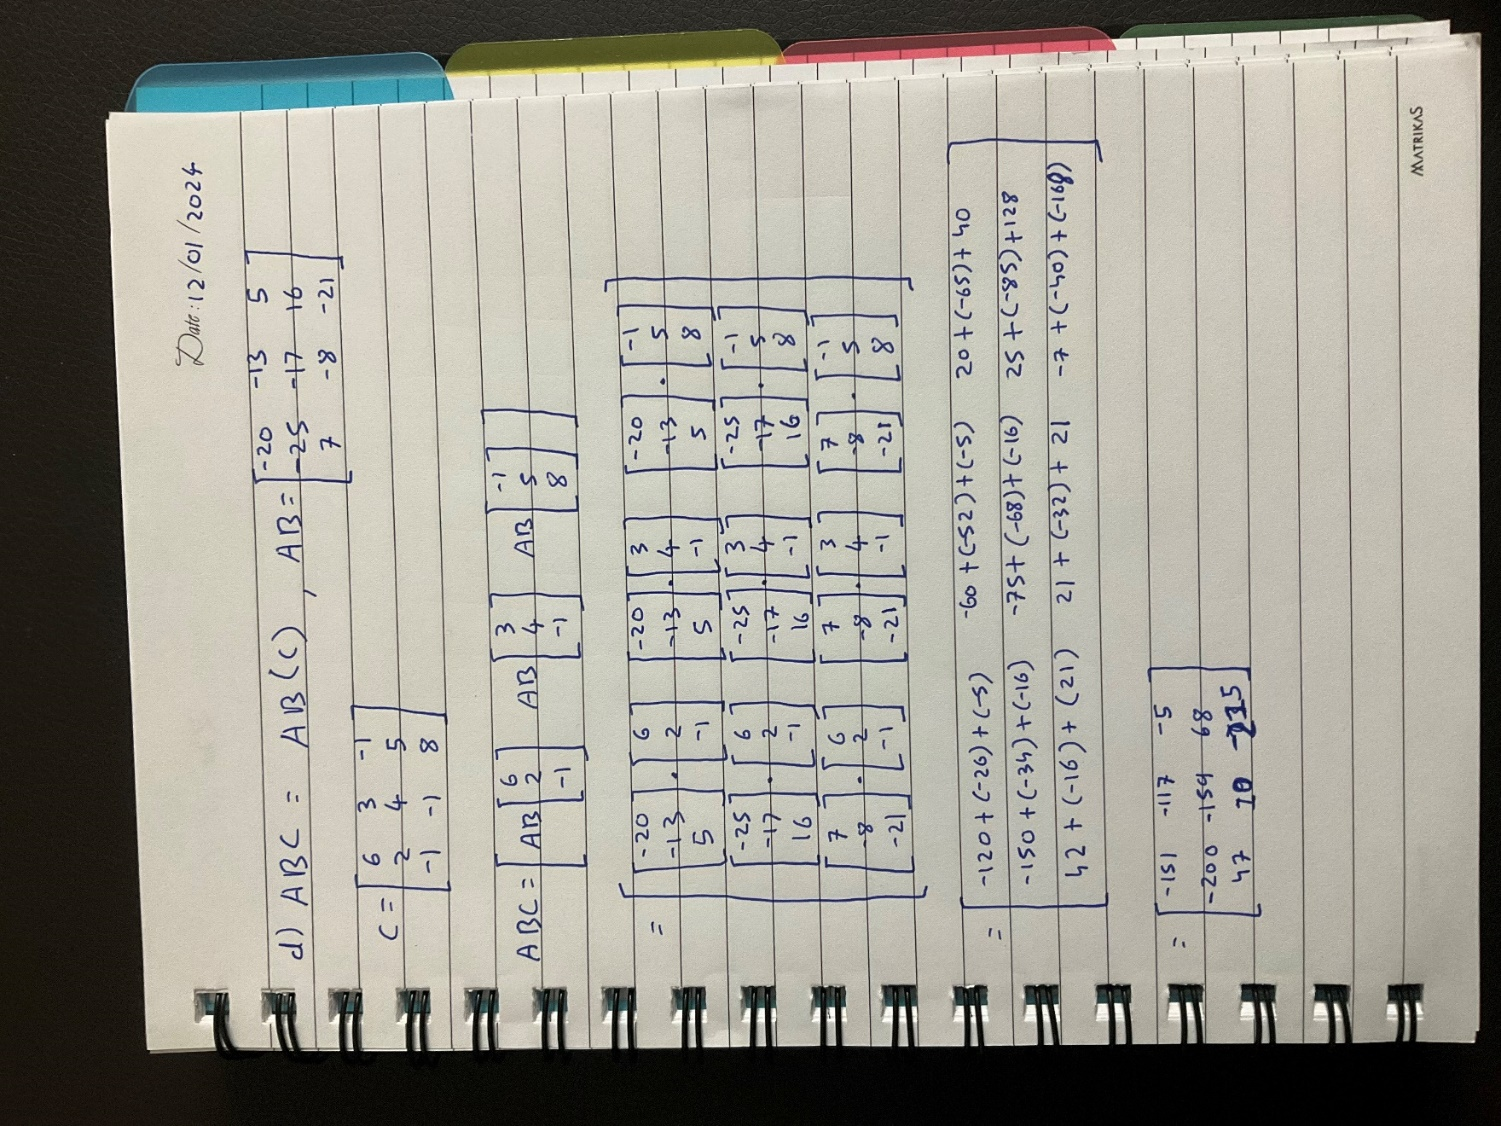 Date: 12/01/2024
d) ABC = AB(C) , AB = [-20 -13 5
-25 -17 16
7 -8 -21]
C = [6 3 -1
2 4 5
-1 -1 8]
ABC = [AB[6 2 -1] AB[3 4 -1] AB[-1 5 8]]
= [[-20 -13 5].[6 2 -1] [-20 -13 5].[3 4 -1] [-20 -13 5].[-1 5 8]
[-25 -17 16].[6 2 -1] [-25 -17 16].[3 4 -1] [-25 -17 16].[-1 5 8]
[7 -8 -21].[6 2 -1] [7 -8 -21].[3 4 -1] [7 -8 -21].[-1 5 8]]
= [-120 + (-26) + (-5) -60 + (-52) + (-5) 20 + (-65) + 40
-150 + (-34) + (-16) -75 + (-68) + (-16) 25 + (-85) + 128
42 + (-16) + (21) 21 + (-32) + 21 -7 + (-40) + (-168)]
= [-151 -117 -5
-200 -159 68
47 10 -215]
MATRIKAS